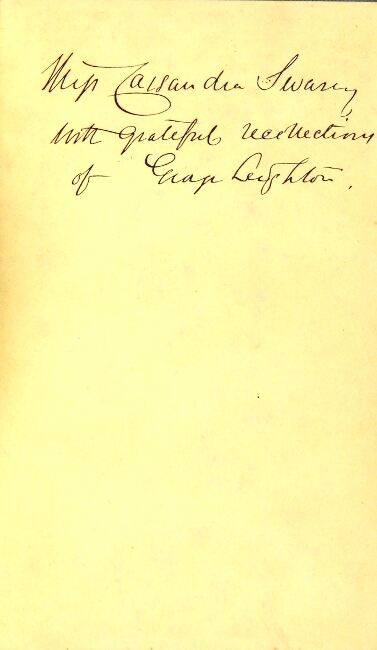 Miss Cassandra Swasey
with grateful recollections
of George Leighton.